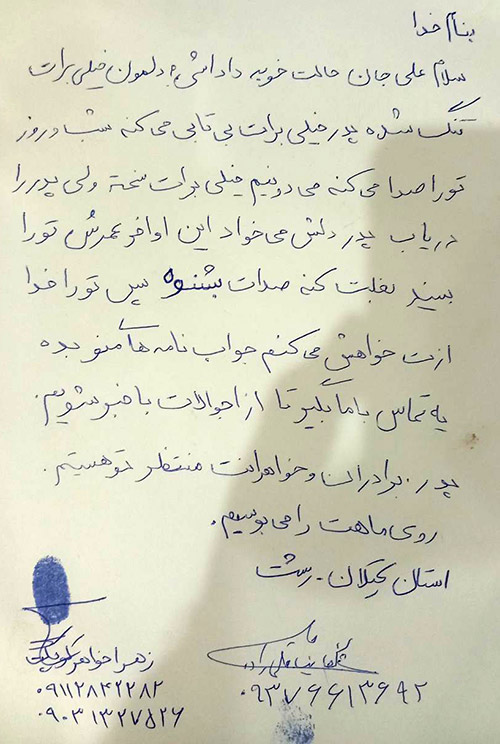 بنام خدا
سلام علی جان حالت خوبه داداشی؟ دلمون خیلی برات
تنگ شده پدر خیلی برات بی تابی می کنه شب و روز
تو را صدا می کنه می دونیم خیلی برات سخته ولی پدر را
دریاب پدر دلش می خواد این اواخر عمرش تو را
ببیند بغلت کنه صدات بشنوه پس تو را خدا
ازت خواهش می کنم جواب نامه های منو بده
یه تماس با ما بگیر تا از احوالات با خبر شویم.
پدر. برادران و خواهرانت منتظر تو هستیم.
روی ماهت را می بوسیم.
استان گیلان - رشت
زهرا خواهر کوچکت
۰۹۱۱۲۸۴۲۲۸۲
۰۹۰۳۱۳۲۷۵۲۶
قلی زاده
۰۹۳۷۶۶۱۳۶۹۲